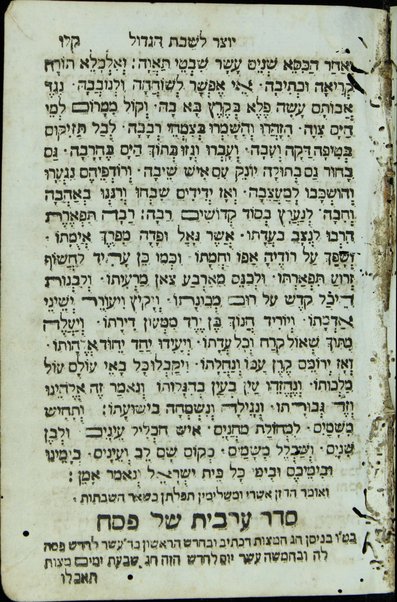 יוצר לשבת הגדול
קלו
ואחר הכסא שנים עשר שבטי תאוה: ואלמלא תורה
קריאה וכתיבה · אי אפשר לשוררה ולנובבה · נגד
אבותם עשה פלא בקרץ בא בה · וקול במרום למי
הים צוה · הזהרו והשמרו בצמתי רבבה · לבל תזיקום
בטיפה דקה ועבה · ועברו ונזו בתוך הים בחרבה · גם
בחור גם בתולה יונק עם איש שיבה · ורודפיהם ננערו
והושכבו למעצבה · ואז ידידים שבחו ורננו באהבה
וחבה · לנערץ בסוד קדושים רבה: רבה תפארת
דרכו לנצב בעדתו · אשר גאל ופדה מפרך אימתו ·
ושפך על רודיה אפו וחמתו · וכמו כן עתיד לחשוף
זרוע תפארתו · ולכנס מארבע צאן מרעיתו · ולבנות
היכל קדש על רום מכונתו · ויקיץ ויעורר ישיני
אדמתו · ויוריד חנוך בן ירד ממעון דירתו · ויעלה
מתוך שאול קרח וכל עדתו · ויעידו יחד יחוד אלהותו ·
ואז ירומם קרן עמו ונחלתו · ויקבלו כל באי עולם עול
מלכותו · ונחזהו עין בעין בהגלותו · ונאמר זה אלהינו
וזה גבורתו · ונגילה ונשמחה בישועתו: ותחיש
משמים · למחולת מחנים · איש חכליל עינים · ולבן
שנים · ושכלל משמים · מקום שם לב ועינים · בימינו
ובימיכם ובימי כל בית ישראל ונאמר אמן:
ואומר החזן אשרי ומשלימין תפלתן כשאר השבתות ·
סדר ערבית של פסח
בט"ו בניסן חג המצות דכתיב ובחדש הראשון בד' עשר לחדש פסח
לה ובחמשה עשר יום לחדש הזה חג שבעת ימים מצות
תאכלו